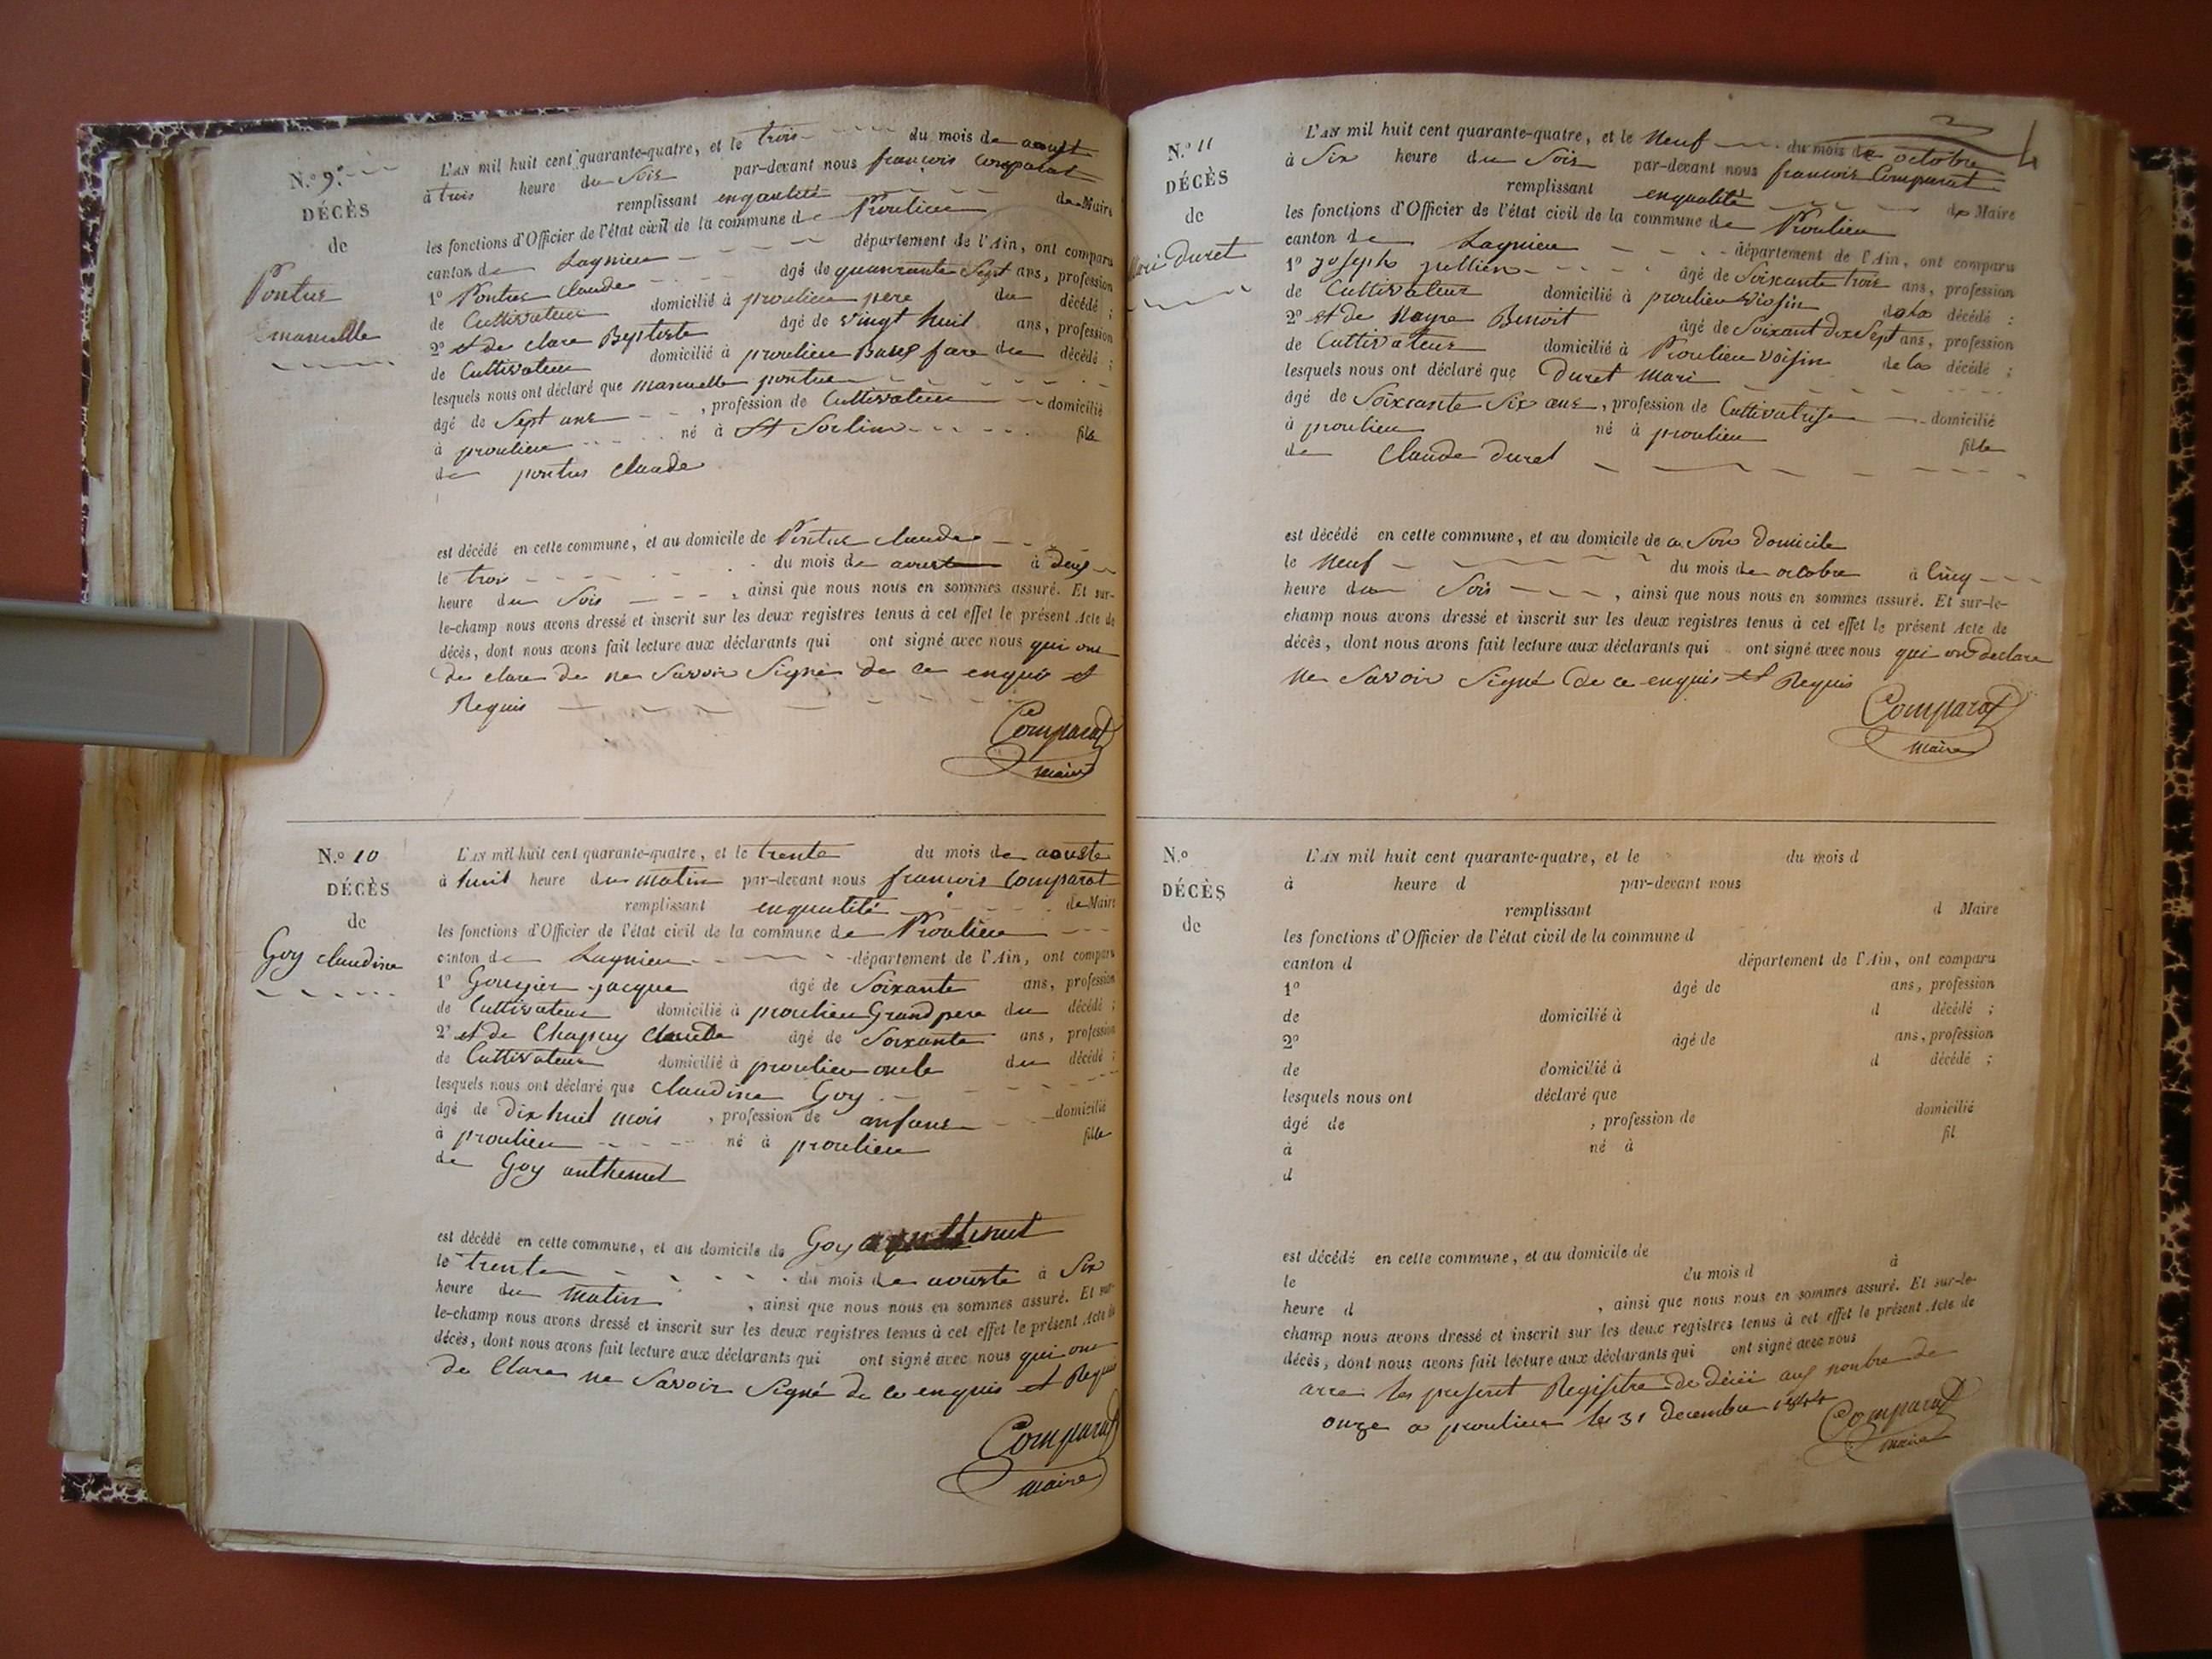 N.º 9.
DÉCÈS
de
Pontus
Emanuelle
L'AN mil huit cent quarante-quatre, et le trois du mois de aoust
à trois heure du Soir par-devant nous françois Comparat
remplissant enqualité de Maire
les fonctions d'Officier de l'état civil de la commune de Proulieu
canton de Lagnieu département de l'Ain, ont comparu
1º Pontus Claude âgé de quanrante Sept ans, profession
de Cultivateur domicilié à proulieu pere du décédé ;
2º et de clare Beptiste âgé de vingt huit ans, profession
de Cultivateur domicilié à proulieu Baux fare du décédé ;
lesquels nous ont déclaré que manuelle pontus
âgé de Sept ans , profession de Cultivateur domicilié
à proulieu né à St Sorlin fille
de pontus Claude
est décédé en cette commune, et au domicile de Pontus claude
le trois du mois de aoust à deux
heure du Soir , ainsi que nous nous en sommes assuré. Et sur-
le-champ nous avons dressé et inscrit sur les deux registres tenus à cet effet le présent Acte de
décès, dont nous avons fait lecture aux déclarants qui ont signé avec nous qui ont
de clare de ne Savoir Signé de ce enquis et
Requis
Comparat
maire
N.º 10
DÉCÈS
de
Goy claudine
L'AN mil huit cent quarante-quatre, et le trente du mois de aouste
à huit heure du matin par-devant nous francois Comparat
remplissant enqualité de Maire
les fonctions d'Officier de l'état civil de la commune de Proulieu
canton de Lagnieu département de l'Ain, ont comparu
1º Goujier jacque âgé de Soixante ans, profession
de Cultivateur domicilié à proulieu Grand pere du décédé ;
2º et de Chapuy Claude âgé de Soixante ans, profession
de Cultivateur domicilié à proulieu oncle du décédé ;
lesquels nous ont déclaré que Claudine Goy
âgé de dix huit mois , profession de anfans domicilié
à proulieu né à proulieu fille
de Goy anthemet
est décédé en cette commune, et au domicile de Goy
le trente du mois de aouste à Six
heure du matin , ainsi que nous nous en sommes assuré. Et sur-
le-champ nous avons dressé et inscrit sur les deux registres tenus à cet effet le présent Acte de
décès, dont nous avons fait lecture aux déclarants qui ont signé avec nous qui ont
de Clare ne Savoir Signé de ce enquis et Requis
Comparat
maire
N.º 11
DÉCÈS
de
Mari duret
L'AN mil huit cent quarante-quatre, et le Neuf du mois de octobre
à Six heure du Soir par-devant nous francois Comparat
remplissant enqualité de Maire
les fonctions d'Officier de l'état civil de la commune de Proulieu
canton de Lagnieu département de l'Ain, ont comparu
1º Joseph jullien âgé de Soixante trois ans, profession
de Cultivateur domicilié à proulieu voisin de la décédé ;
2º et de Nayre Benoit âgé de Soixant dix Sept ans, profession
de Cultivateur domicilié à Proulieu voisin de la décédé ;
lesquels nous ont déclaré que duret Mari
âgé de Soixcante Six ans , profession de Cultivatrise domicilié
à proulieu né à proulieu fille
de Claude duret
est décédé en cette commune, et au domicile de a Son domicile
le Neuf du mois de octobre à Cinq
heure du Soir , ainsi que nous nous en sommes assuré. Et sur-le-
champ nous avons dressé et inscrit sur les deux registres tenus à cet effet le présent Acte de
décès, dont nous avons fait lecture aux déclarants qui ont signé avec nous qui ont declare
ne Savoir Signé de ce enquis et Requis
Comparat
maire
N.º
DÉCÈS
de
L'AN mil huit cent quarante-quatre, et le du mois d
à heure d par-devant nous
remplissant d Maire
les fonctions d'Officier de l'état civil de la commune d
canton d département de l'Ain, ont comparu
1º âgé de ans, profession
de domicilié à d décédé ;
2º âgé de ans, profession
de domicilié à d décédé ;
lesquels nous ont déclaré que
âgé de , profession de domicilié
à né à fil
d
est décédé en cette commune, et au domicile de
le du mois d à
heure d , ainsi que nous nous en sommes assuré. Et sur-le-
champ nous avons dressé et inscrit sur les deux registres tenus à cet effet le présent Acte de
décès, dont nous avons fait lecture aux déclarants qui ont signé avec nous
les present Registre de aux nonbre de
onze a proulieu le 31 decembre 1844
Comparat
maire